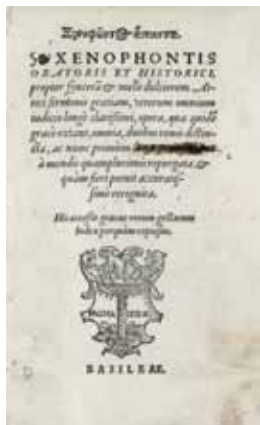 Ξενοφῶντος ἅπαντα.
XENOPHONTIS
ORATORIS ET HISTORICI,
propter synceram & melle dulciorem At-
tici sermonis gratiam, veterum omnium
iudicio longè clarissimi, opera, quæ quidem
græcè extant, omnia, duobus tomis distin-
cta, ac nunc primùm
à mendis quamplurimis repurgata, &
quàm fieri potuit accuratis-
simè recognita.
His accessit græcus rerum gestarum
Index
PALMA
BASILEAE.